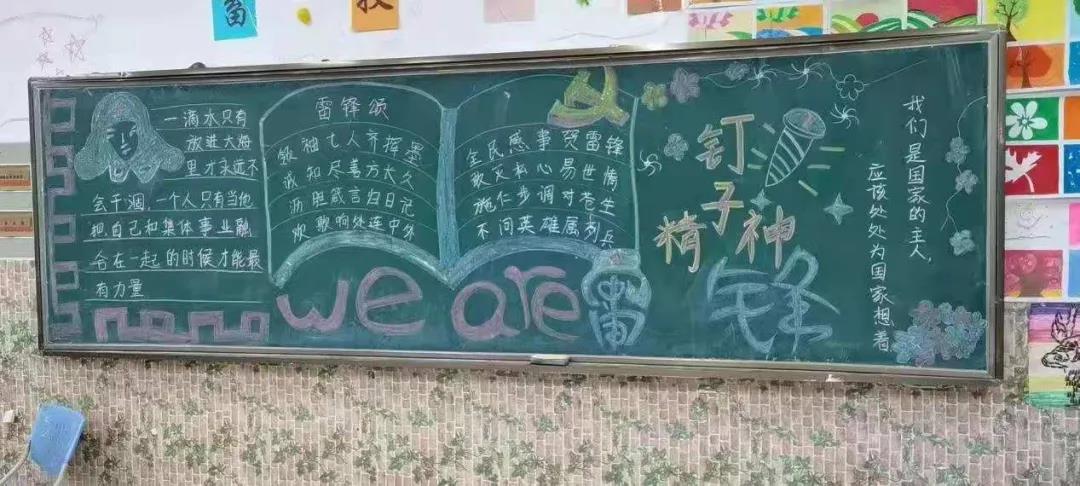 一滴水只有
放进大海
里才永远不
会干涸,一个人只有当他
把自己和集体事业融
合在一起的时候才能最
有力量
雷锋颂
袖七人齐挥墨
诚知尽善方太久
沥胆箴言归日记
欢歌响处连中外
全民感事贺雷锋
心易世情
施仁步调对苍生
不问英雄属列兵
we are 雷锋
钉子
精神
我们是国家的主人,
应该处处为国家想着